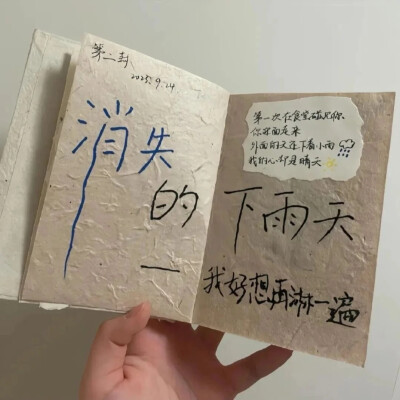 第二封
2025.9.24
消失
的
下雨天
第一次在食堂碰见你
你迎面走来
外面的天在下着小雨
我的心却是晴天
我好想再淋一遍